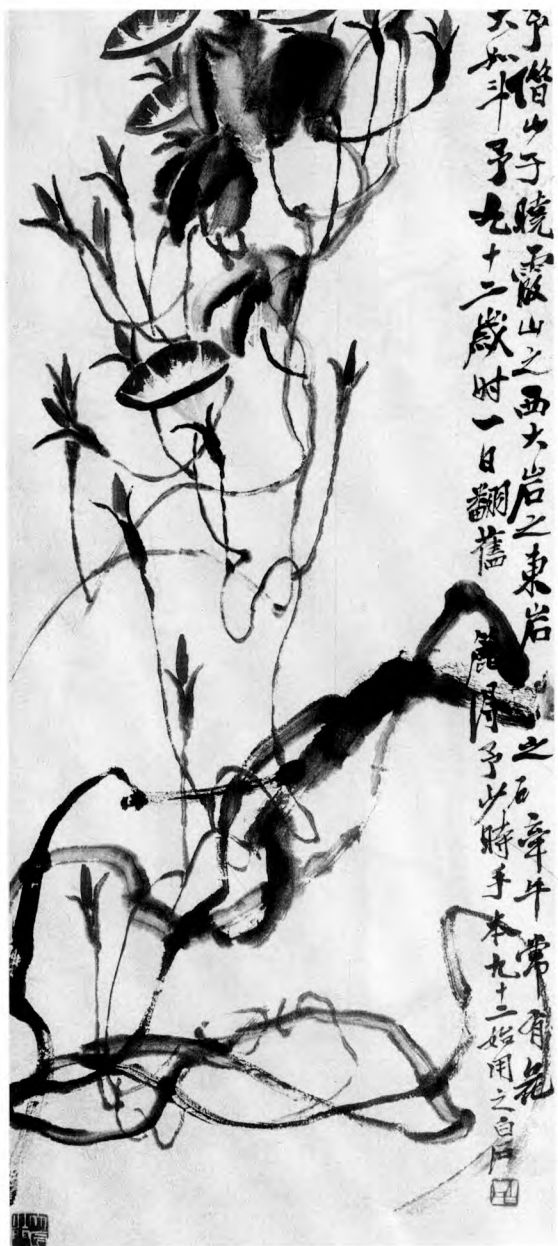 予借山于曉霞山之西大岩之東岩之石牽牛常有花
大如斗予九十二歲时一日翻舊篋得予少時手本九十二始用之白石